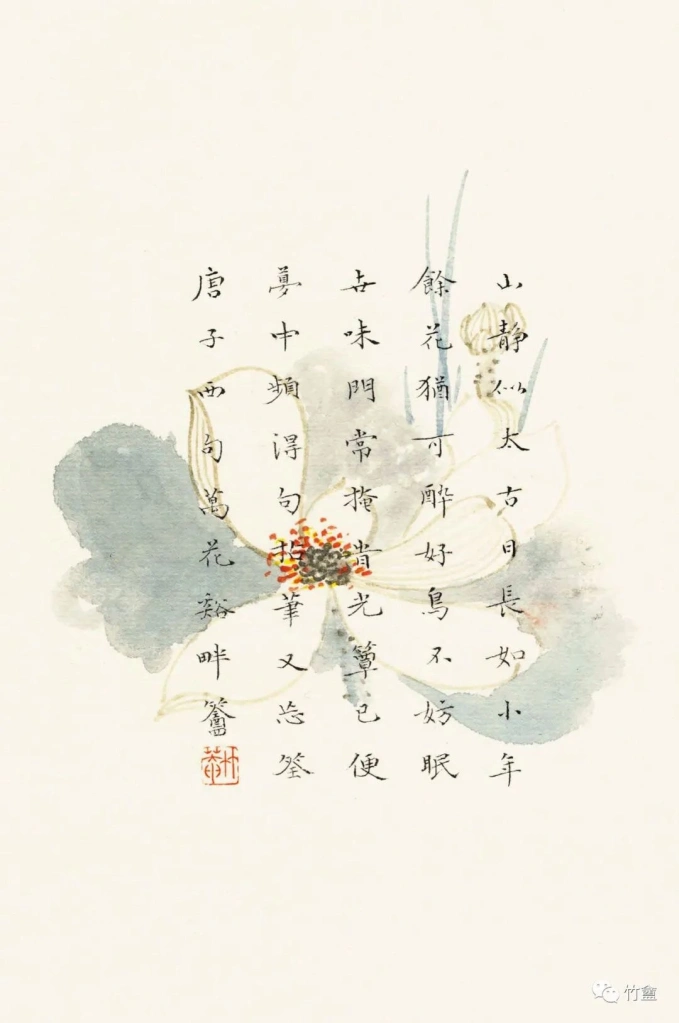 山靜似太古日長如小年
餘花猶可醉好鳥不妨眠
世味門常掩旹光簟已便
夢中頻得句拈筆又忘筌
唐子西句萬花谿畔竹盦
竹盦